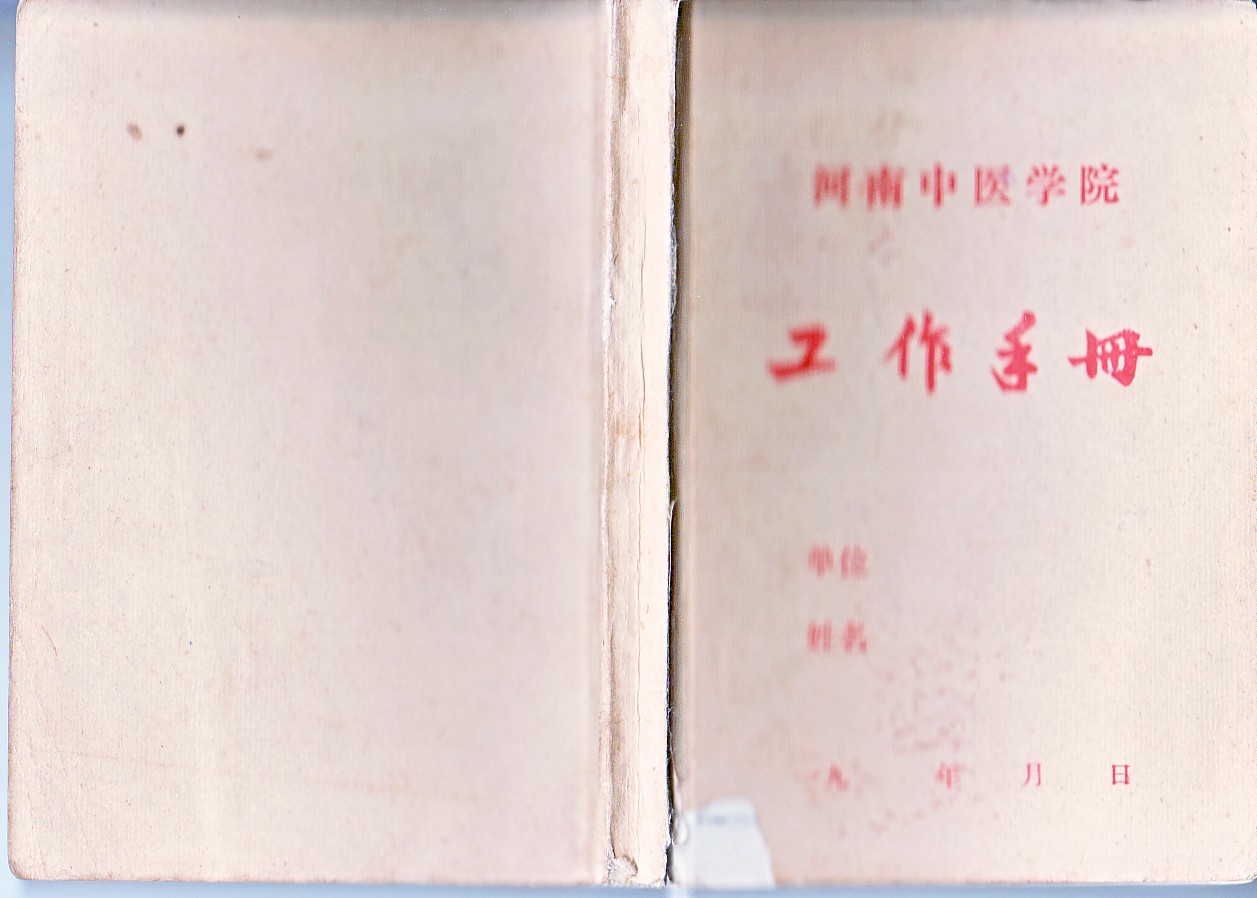 河南中医学院
工作手冊
单位
姓名
一九 年 月 日